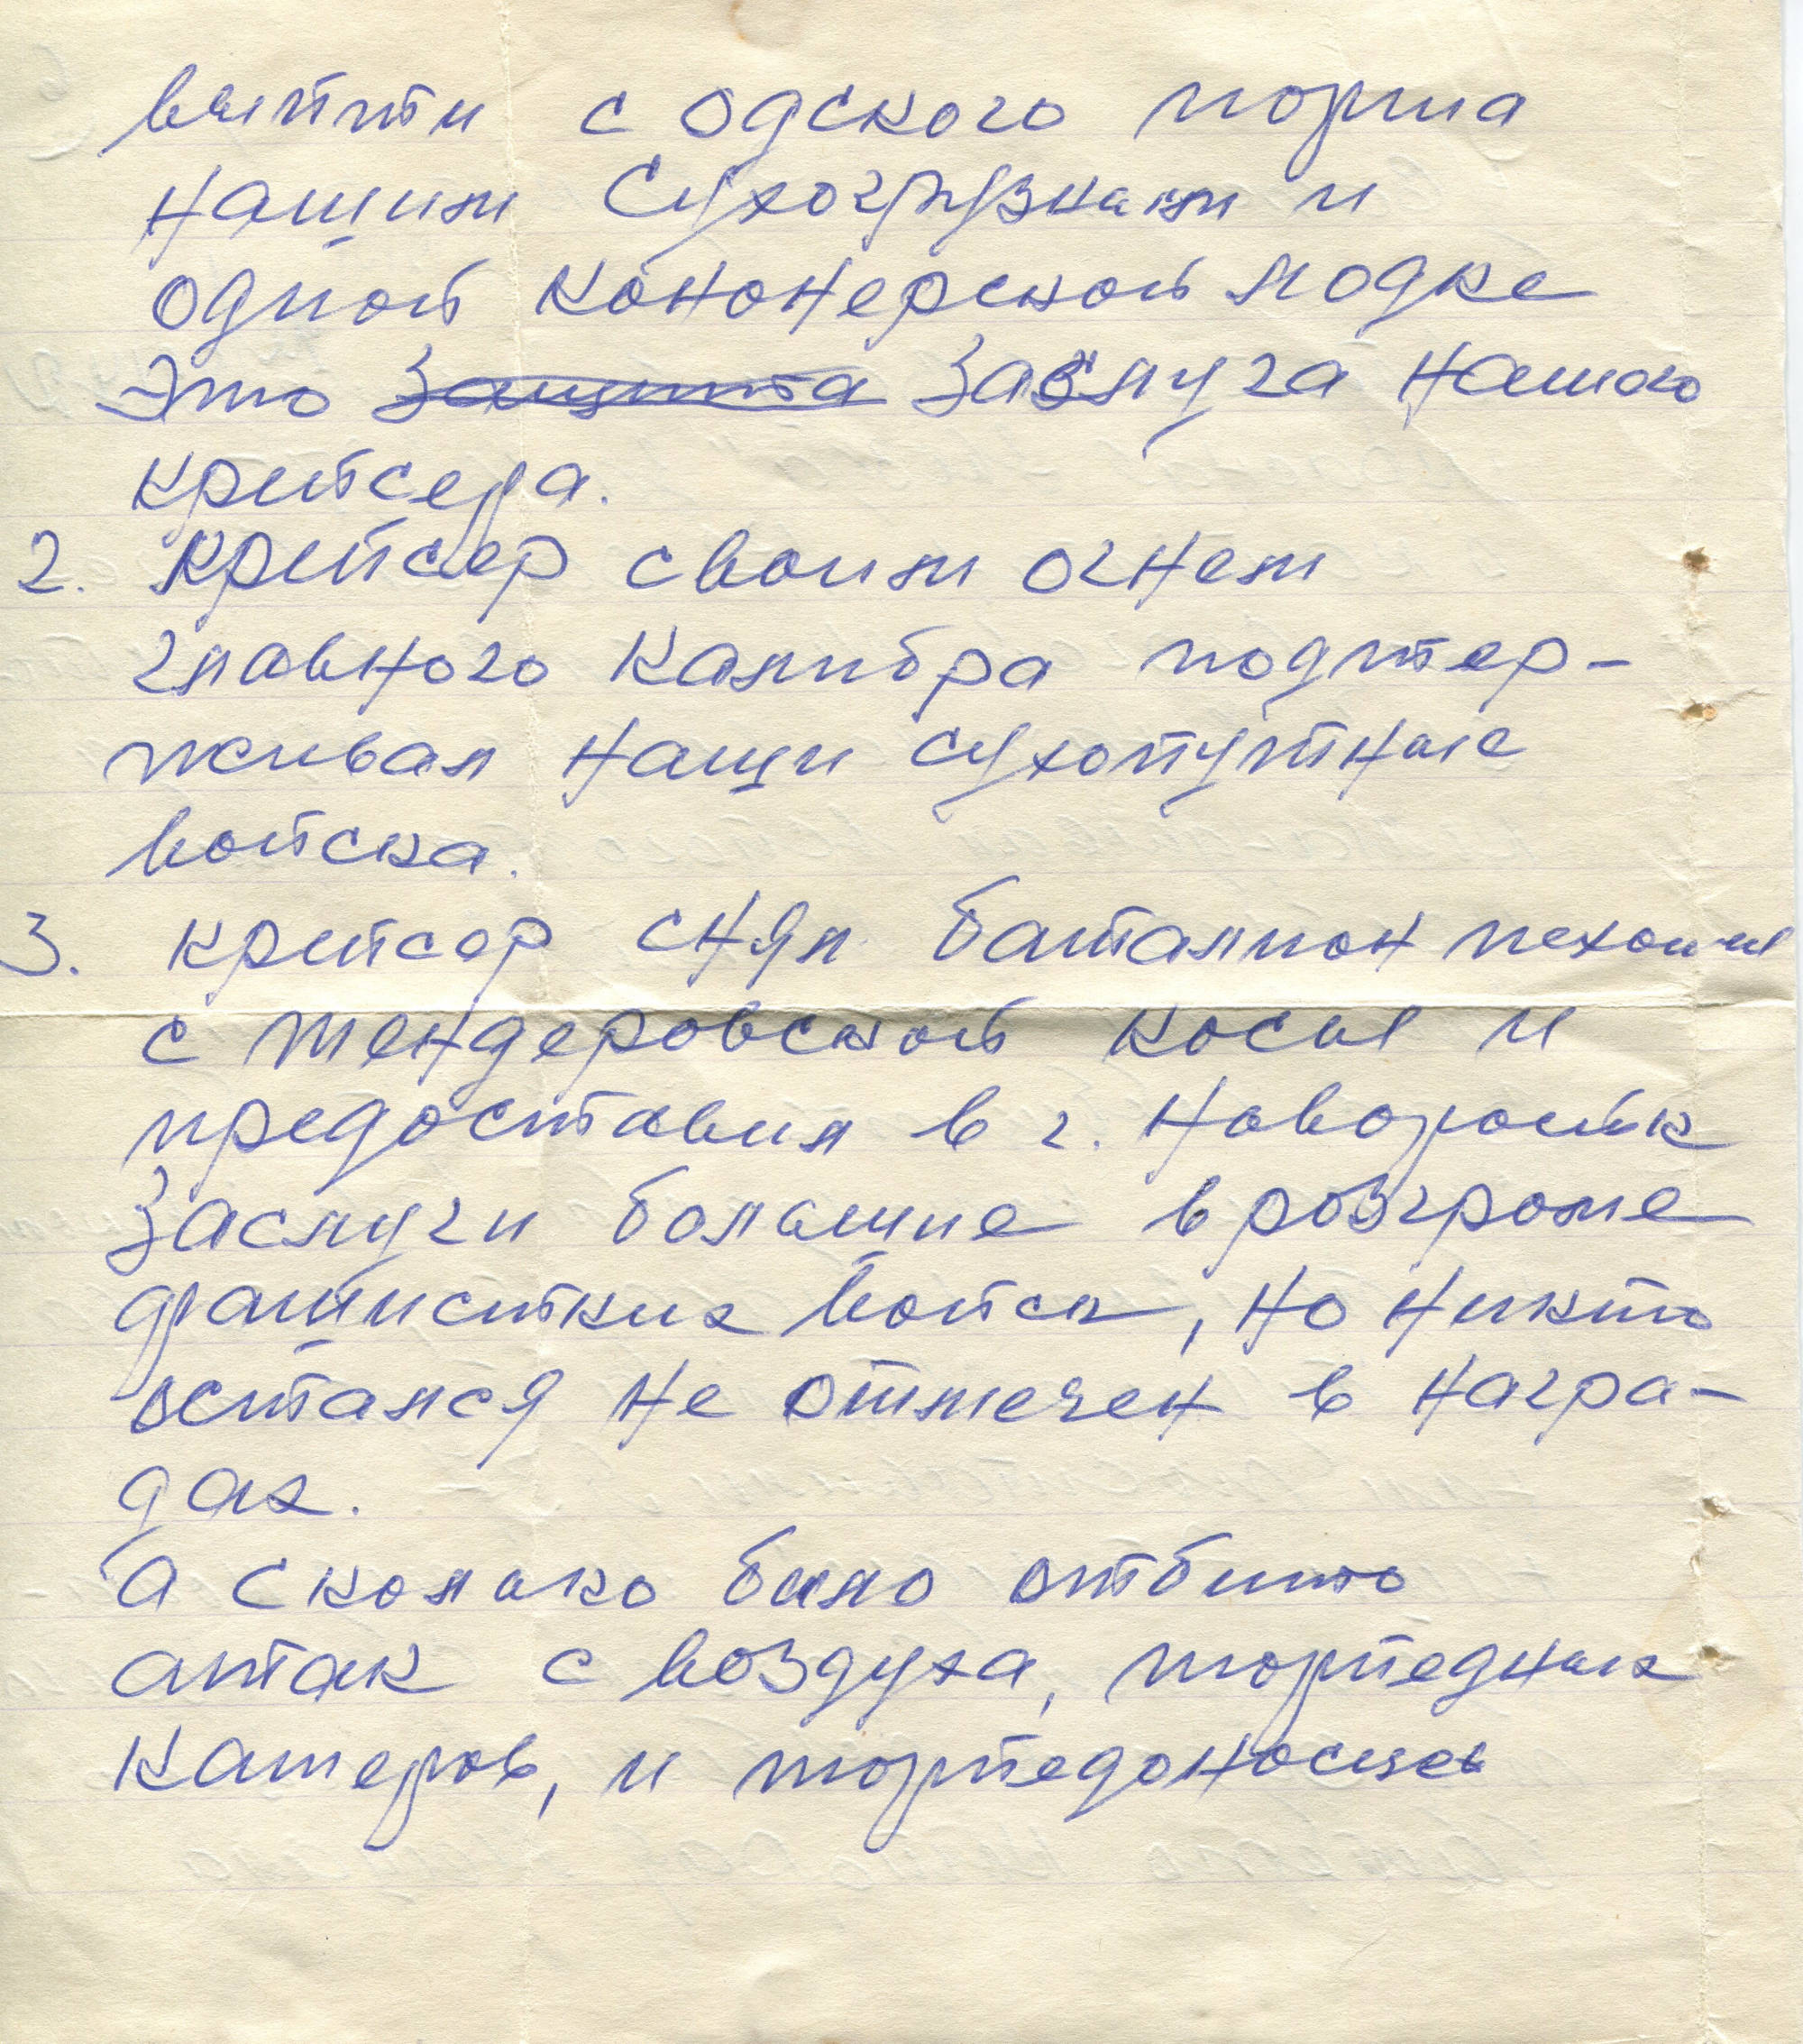 выйти с одского порта
нашим сухогрузнам и
одной кононерской лодке
Это Защита Заслуга нашого
крейсера.
2. Крейсер своим огнем
главного калибра подтер-
живал наши сухопутные
войска.
3. крейсер снял баталион пехоты
с тендеровской косы и
предоставил в г. Новоросийск
Заслуги большие в розгроме
фашистких войск, но никто
остался не отмечен в награ-
дах.
А сколько было отбито
аттак с воздуха, торпедных
катеров, и торпедоносцев